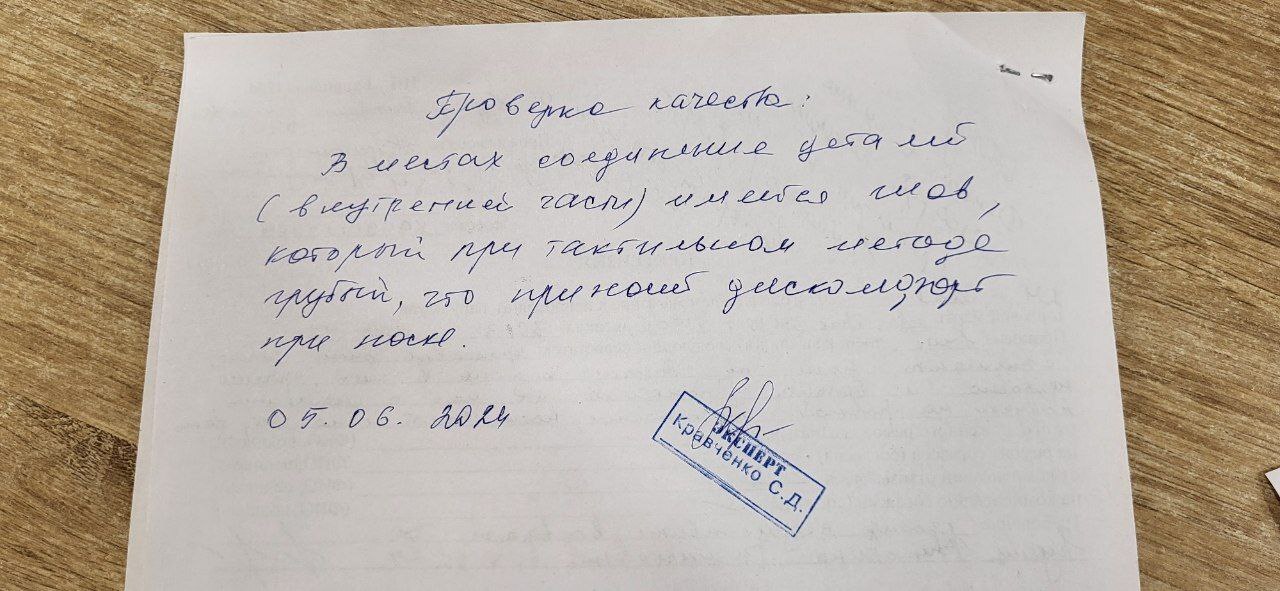 Проверка качества:
В местах соединение деталей
(внутренней части) имеется шов,
который при тактильном методе
грубый, что приносит дискомфорт
при носке.
05.06.2024
ЭКСПЕРТ
Кравченко С.Д.